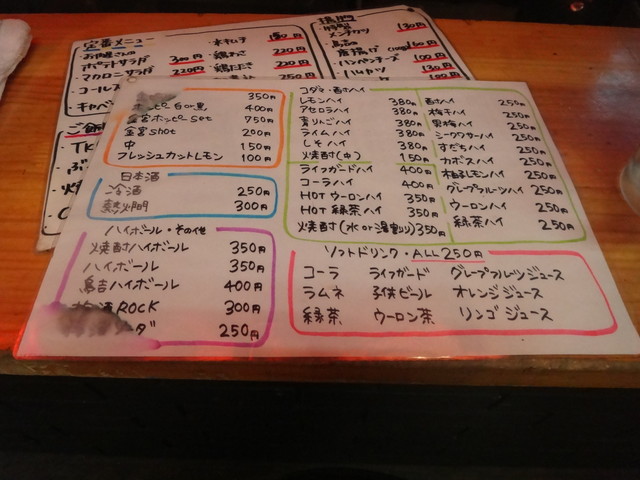 定番メニュー
お肉屋さんの
ポテトサラダ 300円
マカロニサラダ 220円
コールス
キャベ
・水キムチ 150円
・鶏わさ 220円
・鶏たたき 220円
250円
揚門
特製
メンチカツ 130円
鳥吉の
唐揚げ 160円
・ハンペンチーズ 100円
・ハムカツ 130円
100円
ご飯
・TK
・ぶ
350円
ホッピー白or黒 400円
金宮ホッピーset 750円
金宮shot 200円
中 150円
フレッシュカットレモン 100円
日本酒
冷酒 250円
熱燗 300円
ハイボール・その他
焼酎ハイボール 350円
ハイボール 350円
鳥吉ハイボール 400円
梅酒ROCK 300円
ダ 250円
コダマ・酎ハイ
レモンハイ 380円
アセロラハイ 380円
青りんごハイ 380円
ライムハイ 380円
しそハイ 380円
焼酎(中) 150円
ライフガードハイ 400円
コーラハイ 400円
HOTウーロンハイ 350円
HOT緑茶ハイ 350円
焼酎(水or湯割り) 350円
酎ハイ 250円
梅干ハイ 250円
果梅ハイ 250円
シークワサーハイ 250円
すだちハイ 250円
カボスハイ 250円
柚子レモンハイ 250円
グレープフルーツハイ 250円
ウーロンハイ 250円
緑茶ハイ 250円
ソフトドリンク・ALL250円
コーラ ライフガード グレープフルーツジュース
ラムネ 子供ビール オレンジジュース
緑茶 ウーロン茶 リンゴジュース